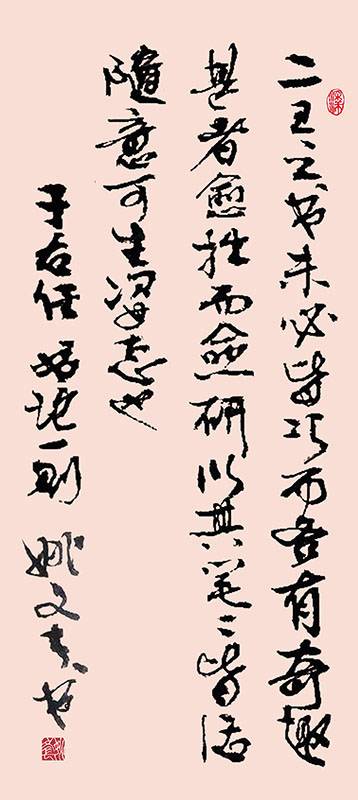 二王之书未必皆巧而各有奇趣
甚者愈拙而愈研以其笔々皆活
隨意可生姿态也
于右任 一则 姚文 书